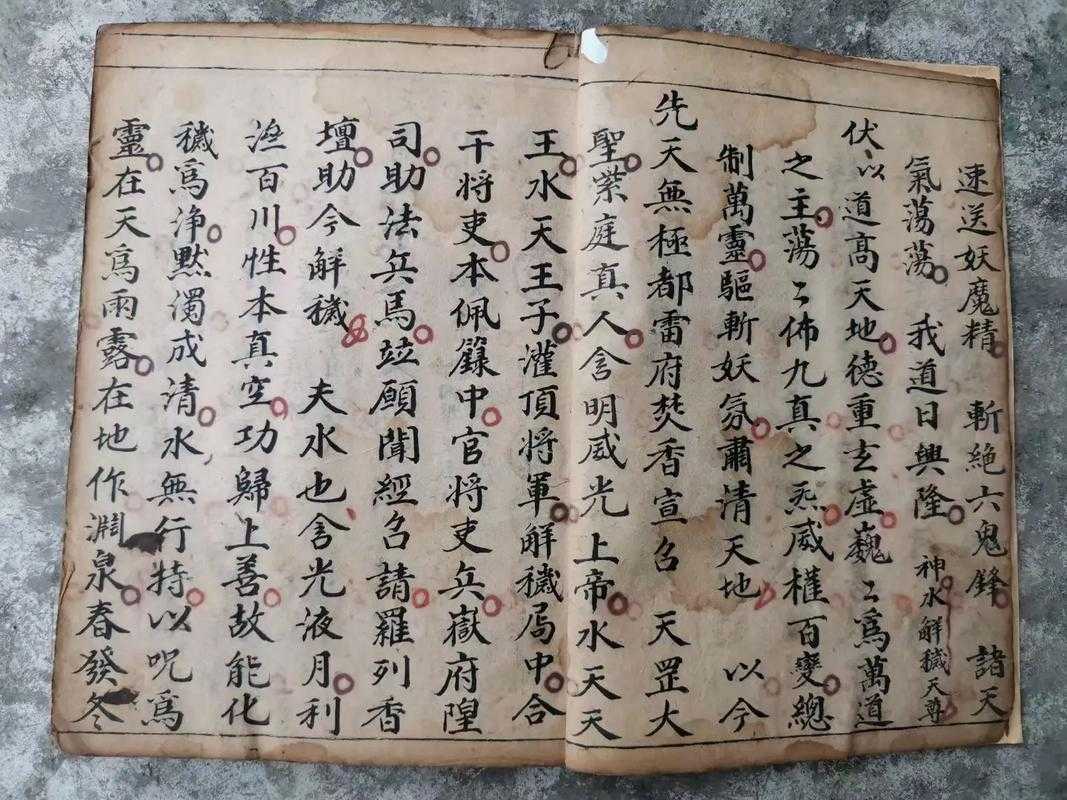 速送妖魔精 斬絶六鬼鋒 諸天
氣蕩蕩 我道日興隆 神水解穢天尊
伏以道高天地德重玄虛巍〻爲萬道
之主蕩〻佈九真之炁威權百變總
制萬靈驅斬妖氛肅清天地 以今
先天無極都雷府焚香宣召 天罡大
聖紫庭真人含明威光上帝水天天
王水天王子灌頂將軍解穢局中合
干將吏本佩籙中官將吏兵嶽府隍
司助法兵馬竝願聞經召請羅列香
壇助今解穢 夫水也含光液月利
派百川性本真空功歸上善故能化
穢爲淨黙濁成清水無行持以呪爲
靈在天爲雨露在地作淵泉春發冬